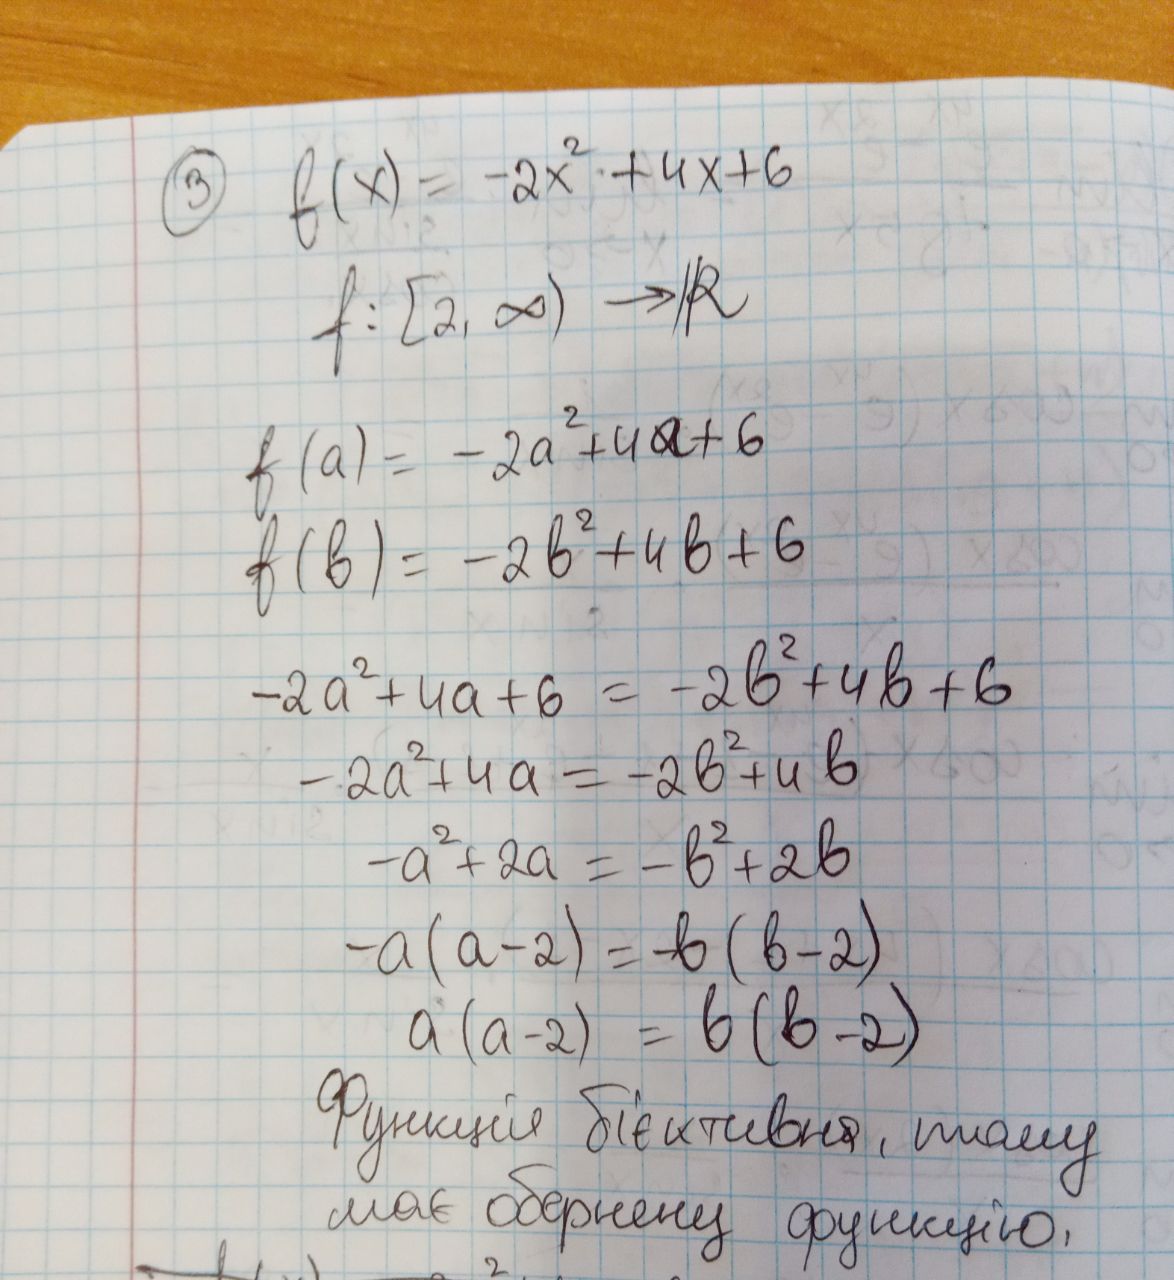 ③ f(x) = -2x² + 4x + 6
f: [2, ∞) → ℝ
f(a) = -2a² + 4a + 6
f(b) = -2b² + 4b + 6
-2a² + 4a + 6 = -2b² + 4b + 6
-2a² + 4a = -2b² + 4b
-a² + 2a = -b² + 2b
-a(a-2) = -b(b-2)
a(a-2) = b(b-2)
Функція бієктивна, тому
має обернену функцію.